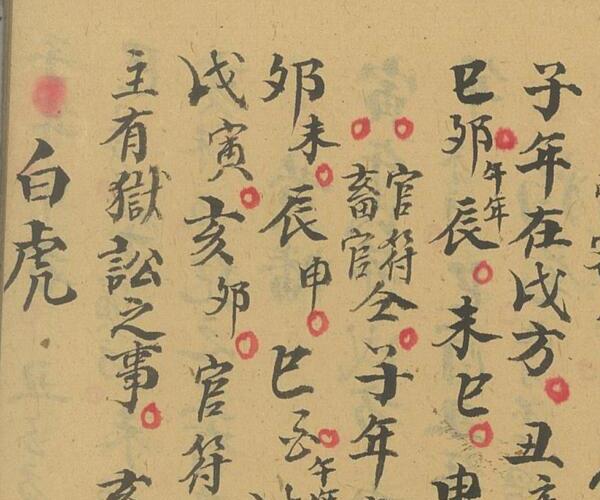 子年在戌方丑
巳卯午年辰未巳申
官符
畜官
仝子年
卯未辰申巳酉午
戌寅亥卯官符
主有獄訟之事亥
白虎